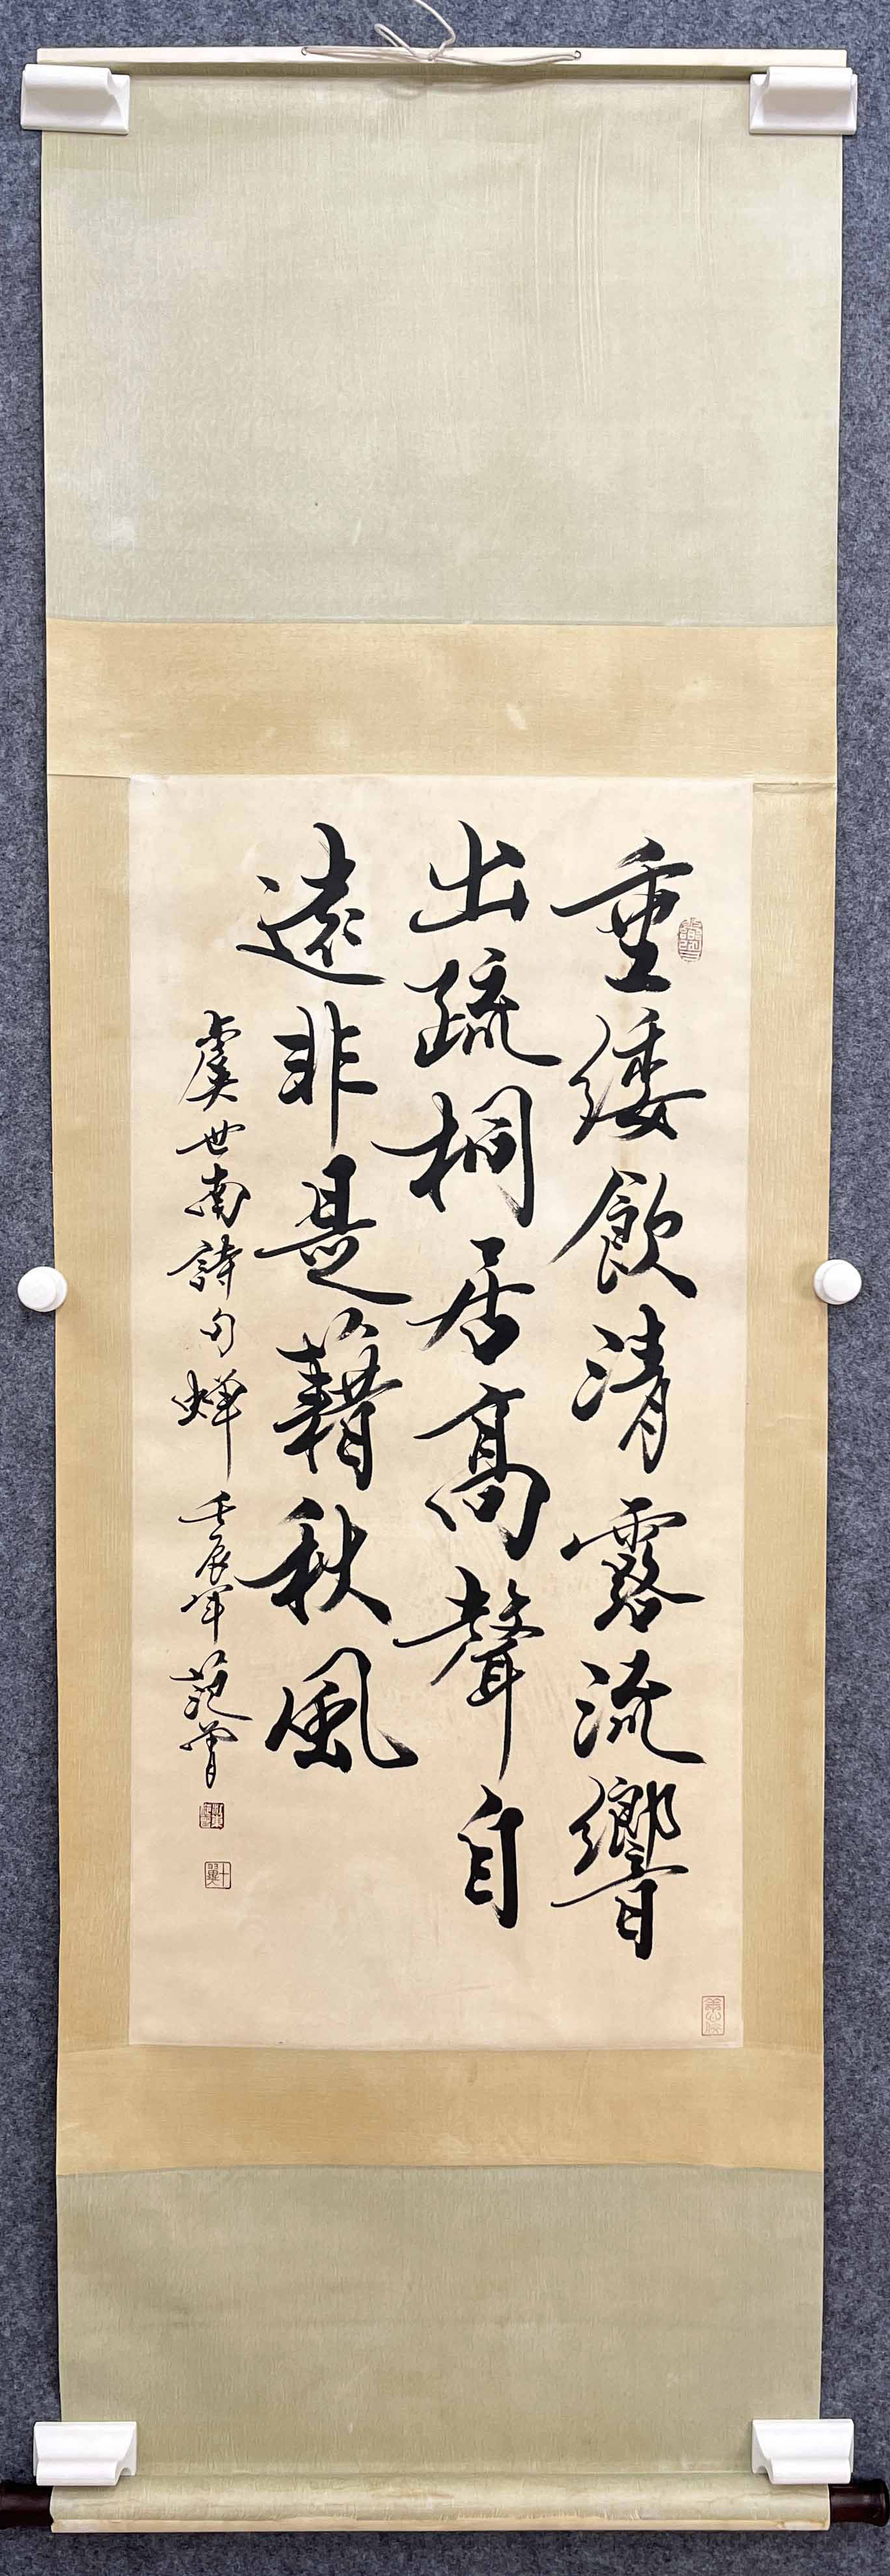 重緌飲清露流響
出疏桐居高聲自
遠非是藉秋風
虞世南詩句蟬 壬辰年 范曾
十翼